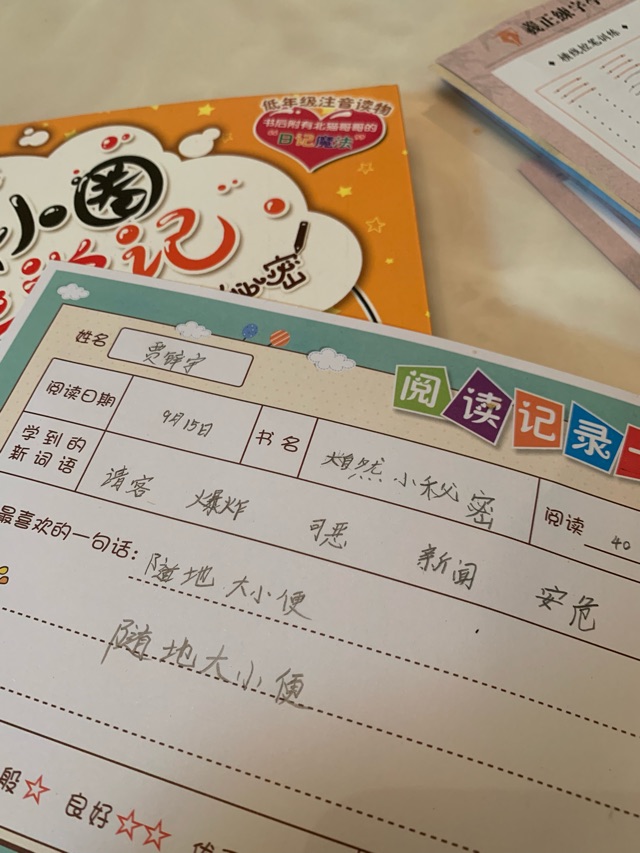 低年级注音读物
书后附有北猫哥哥的
“日记魔法”
小圈
记
密
横线控笔训练
姓名
阅读记录
阅读日期
9月15日
书名
小秘密
阅读 40
学到的
新词语
请客 爆炸 可恶 新闻 安危
最喜欢的一句话:
随地大小便
随地大小便
般☆ 良好☆☆